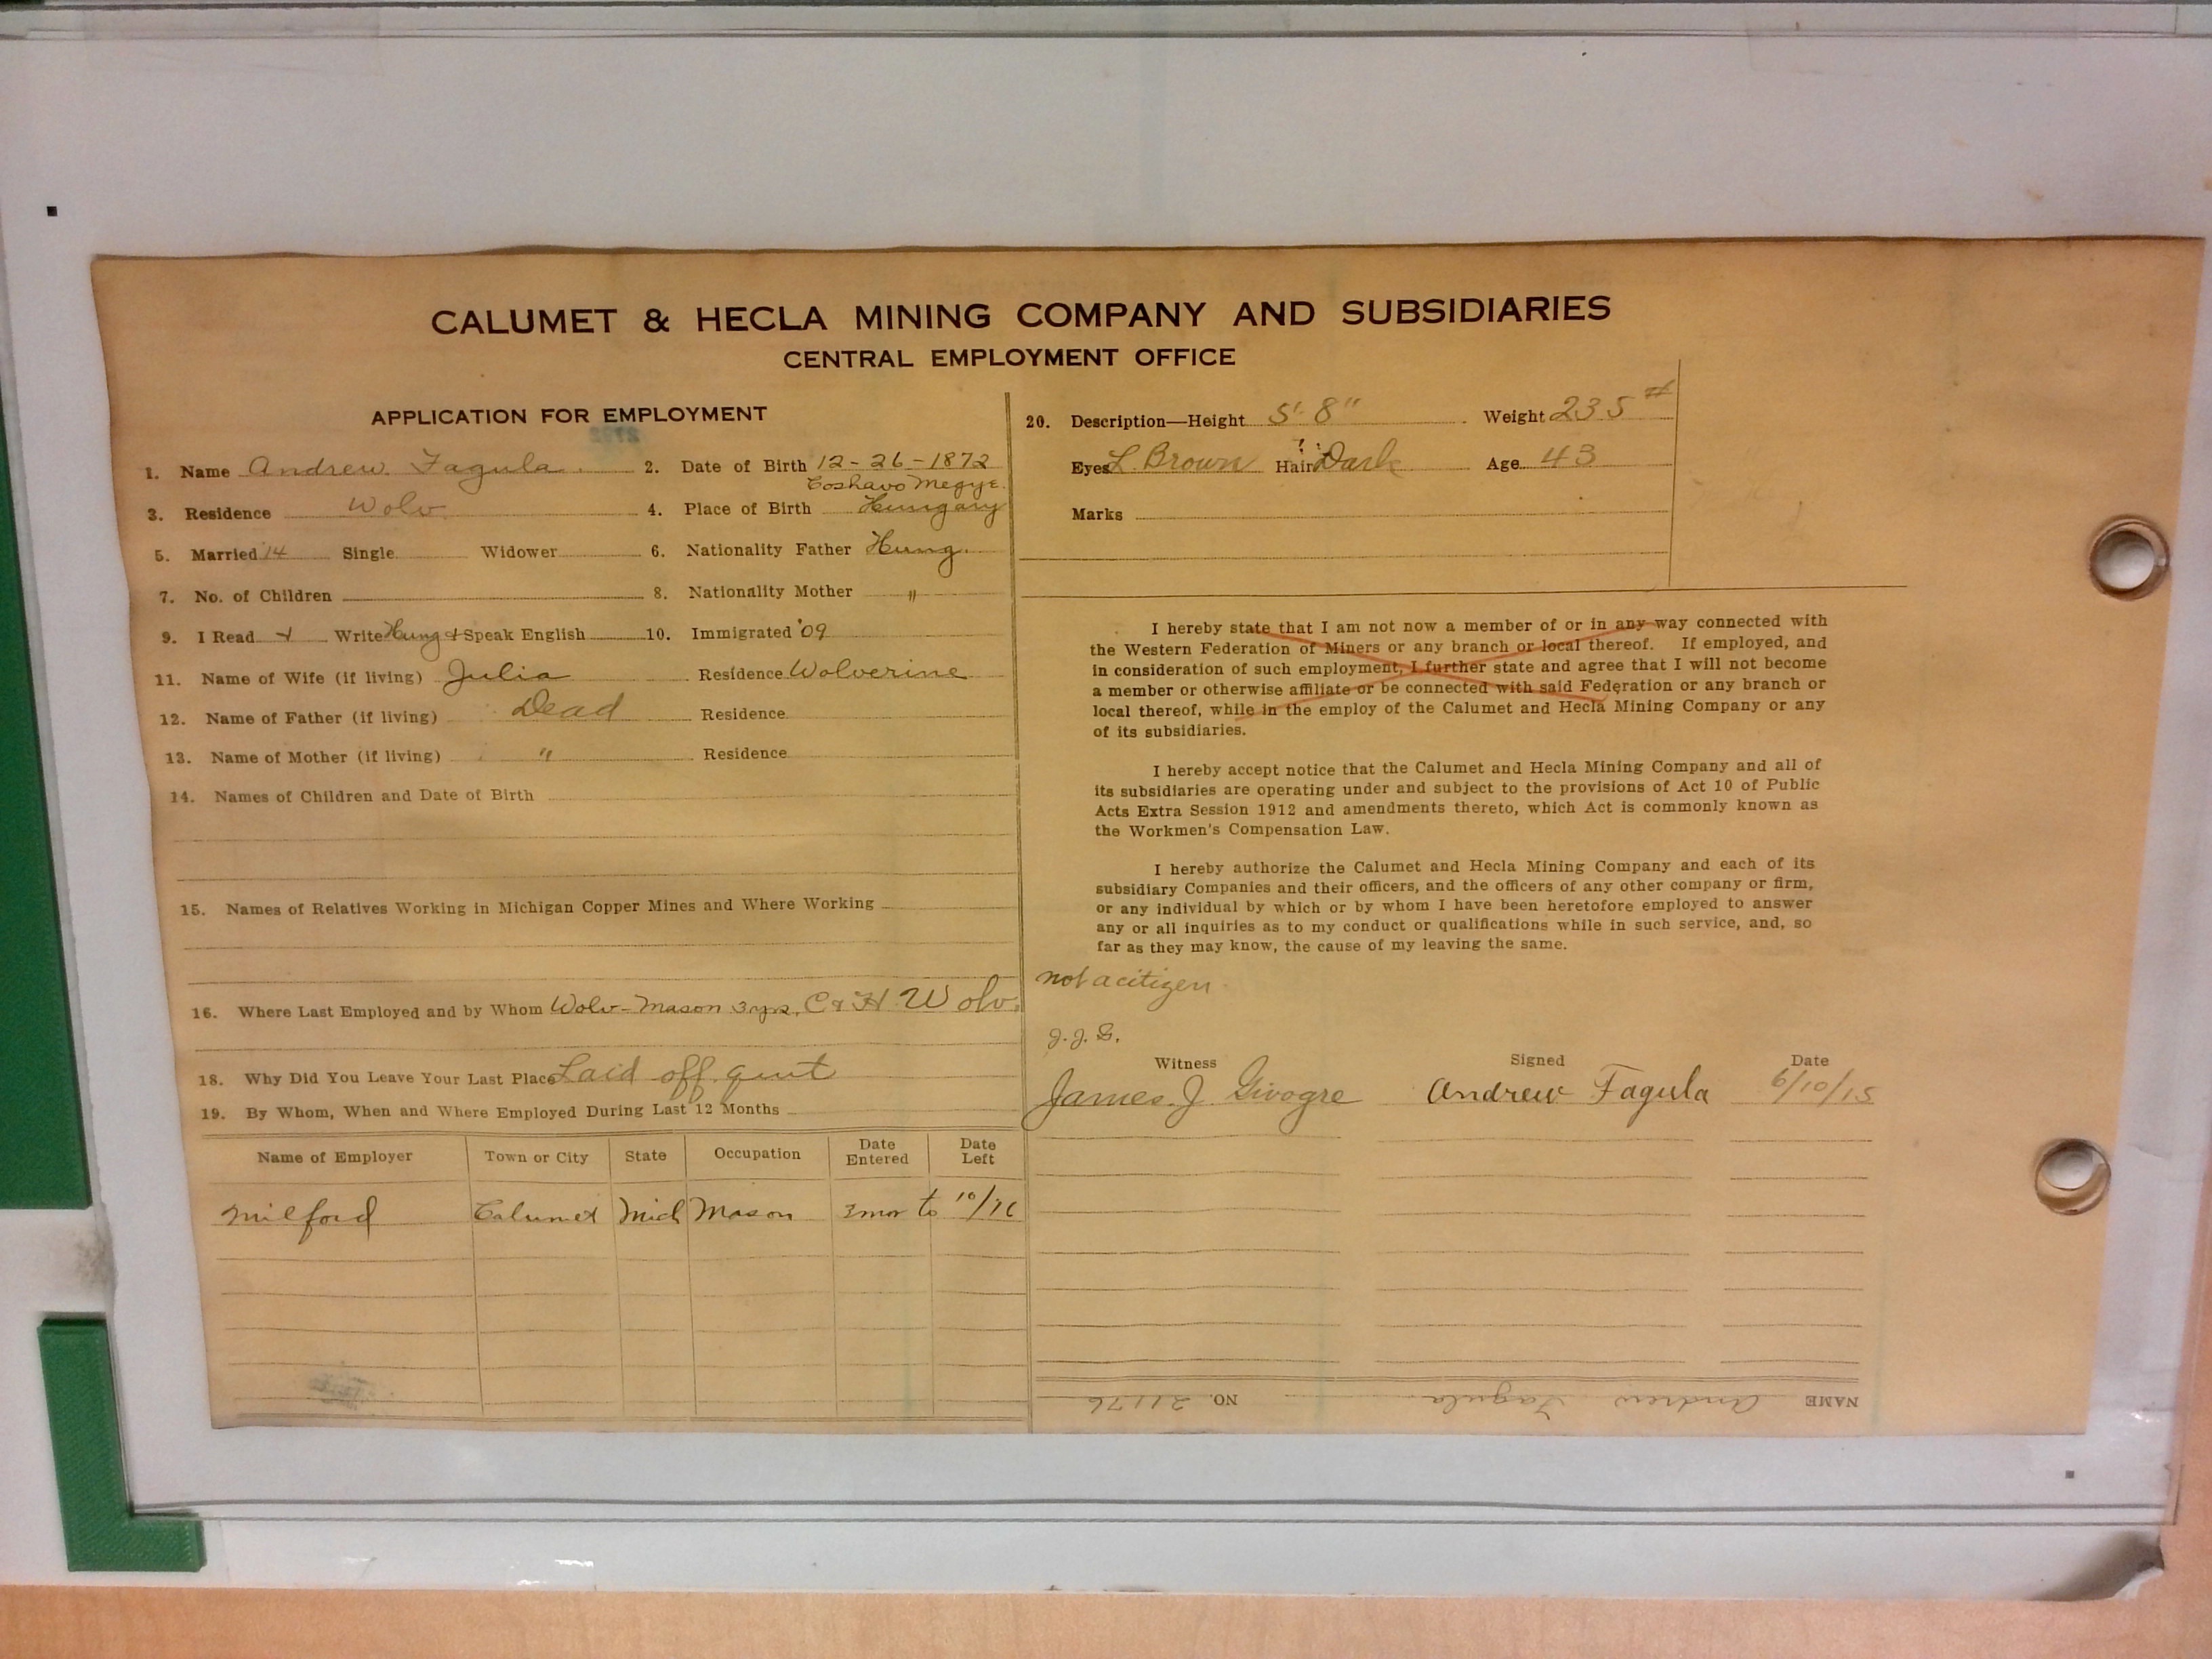 CALUMET & HECLA MINING COMPANY AND SUBSIDIARIES
CENTRAL EMPLOYMENT OFFICE
APPLICATION FOR EMPLOYMENT
1. Name Andrew Fagula 2. Date of Birth 12-26-1872
Megye.
3. Residence Wolv. 4. Place of Birth Hungary
5. Married 14 Single Widower 6. Nationality Father Hung.
7. No. of Children 8. Nationality Mother "
9. I Read + Write Hung + Speak English 10. Immigrated '09
11. Name of Wife (if living) Julia Residence Wolverine
12. Name of Father (if living) Dead Residence
13. Name of Mother (if living) " Residence
14. Names of Children and Date of Birth
15. Names of Relatives Working in Michigan Copper Mines and Where Working
16. Where Last Employed and by Whom Wolv-Mason 3 yrs. C & H Wolv.
18. Why Did You Leave Your Last Place Laid off quit
19. By Whom, When and Where Employed During Last 12 Months
Name of Employer Town or City State Occupation Date Entered Date Left
Milford Calumet Mich Mason 3 mos to 10/16
20. Description—Height 5' 8" Weight 235 #
Eyes L. Brown Hair Dark Age 43
Marks
I hereby state that I am not now a member of or in any way connected with
the Western Federation of Miners or any branch or local thereof. If employed, and
in consideration of such employment, I further state and agree that I will not become
a member or otherwise affiliate or be connected with said Federation or any branch or
local thereof, while in the employ of the Calumet and Hecla Mining Company or any
of its subsidiaries.
I hereby accept notice that the Calumet and Hecla Mining Company and all of
its subsidiaries are operating under and subject to the provisions of Act 10 of Public
Acts Extra Session 1912 and amendments thereto, which Act is commonly known as
the Workmen's Compensation Law.
I hereby authorize the Calumet and Hecla Mining Company and each of its
subsidiary Companies and their officers, and the officers of any other company or firm,
or any individual by which or by whom I have been heretofore employed to answer
any or all inquiries as to my conduct or qualifications while in such service, and, so
far as they may know, the cause of my leaving the same.
not a citizen
J. J. G.
Witness Signed Date
James J Givogre Andrew Fagula 6/10/15
NAME Andrew Fagula NO. 21176